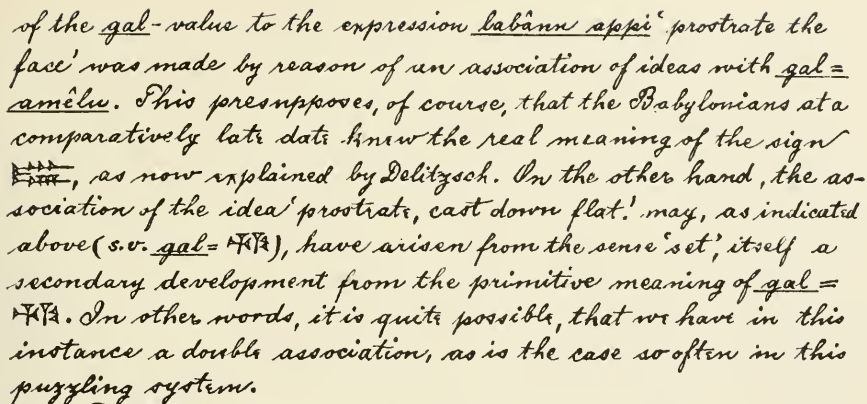 of the gal-value to the expression labânu appi 'prostrate the
face' was made by reason of an association of ideas with gal =
amêlu. This presupposes, of course, that the Babylonians at a
comparatively late date knew the real meaning of the sign
, as now explained by Delitzsch. On the other hand, the as-
sociation of the idea 'prostrate, cast down flat.' may, as indicated
above (s.v. gal = ), have arisen from the sense 'set', itself a
secondary development from the primitive meaning of gal =
. In other words, it is quite possible, that we have in this
instance a double association, as is the case so often in this
puzzling system.